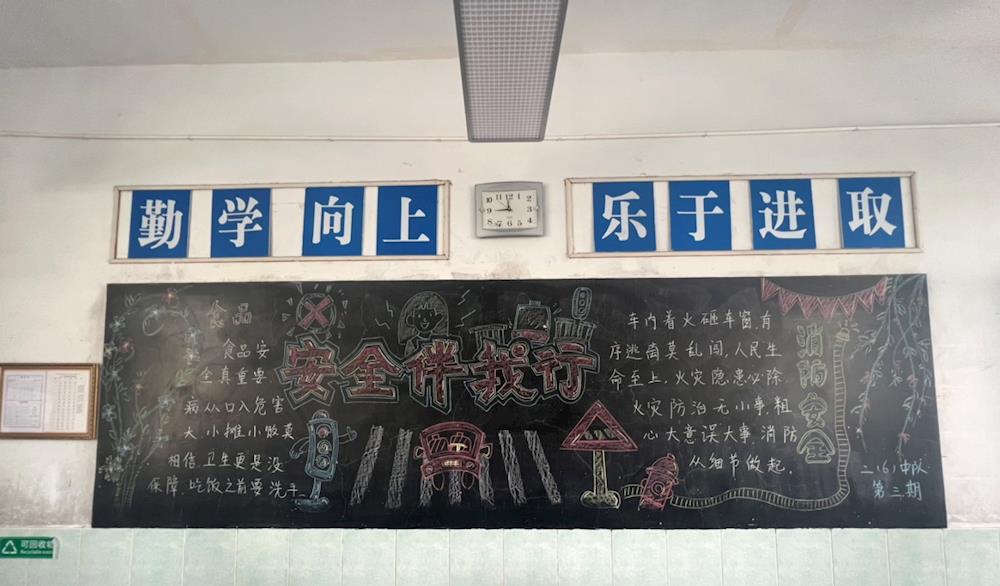 勤学向上
乐于进取
10 11 12 1
2
9
3
8
4
7 6 5
食品
食品安
全真重要,
病从口入危害
大,小摊小贩莫
相信,卫生更是没
保障,吃饭之前要洗手。
安全伴我行
车内着火砸车窗,有
序逃离莫乱闯,人民生
命至上,火灾隐患必除,
火灾防治无小事,粗
心大意误大事,消防
从细节做起。
消防安全
二(6)中队
第三期
可回收物